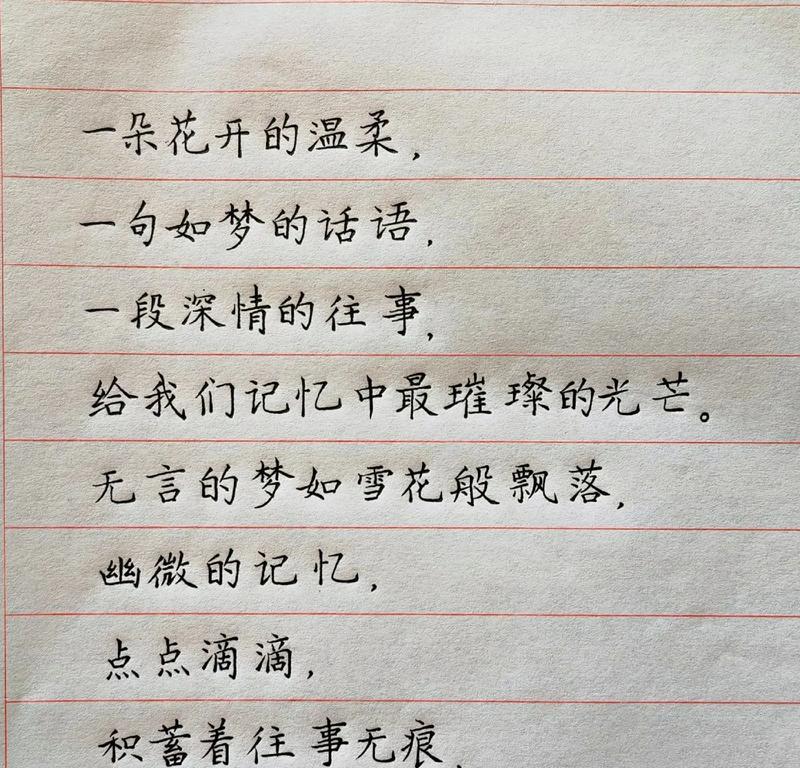 一朵花开的温柔，
一句如梦的话语，
一段深情的往事，
给我们记忆中最璀璨的光芒。
无言的梦如雪花般飘落，
幽微的记忆，
点点滴滴，
积蓄着往事无痕，